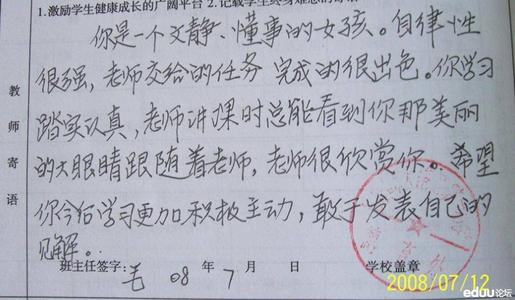 1.激励学生健康成长的广阔平台 2.记载学生终身难忘的
你是一个文静、懂事的女孩。自律性
很强，老师交给的任务 完成的很出色。你学习
踏实认真，老师讲课时总能看到你那美丽
的大眼睛跟随着老师，老师很欣赏你。希望
你今后学习更加积极主动，敢于发表自己的
见解。
教师寄语
班主任签字：毛 08 年 7 月 日 学校盖章
2008/07/12
eduu论坛